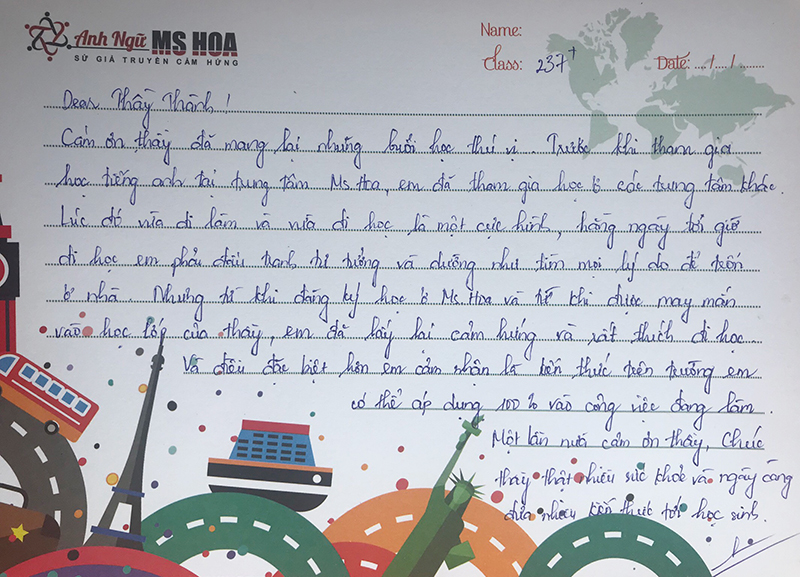 Anh Ngữ MS HOA
SỨ GIẢ TRUYỀN CẢM HỨNG
Name:
Class: 237+
Date: .../.../......
Dear Thầy Thành!
Cám ơn thầy đã mang lại những buổi học thú vị. Trước khi tham gia
học tiếng anh tại trung tâm Ms Hoa, em đã tham gia học ở các trung tâm khác.
Lúc đó vừa đi làm và vừa đi học là một cực hình, hằng ngày tới giờ
đi học em phải đấu tranh tư tưởng và dường như tìm mọi lý do để trốn
ở nhà. Nhưng từ khi đăng ký học ở Ms Hoa và từ khi được may mắn
vào học lớp của thầy, em đã lấy lại cảm hứng và rất thích đi học.
Và điều đặc biệt hơn em cảm nhận là kiến thức trên trường em
có thể áp dụng 100% vào công việc đang làm.
Một lần nữa cảm ơn thầy, Chúc
thầy thật nhiều sức khoẻ và ngày càng
đưa nhiều kiến thức tới học sinh.